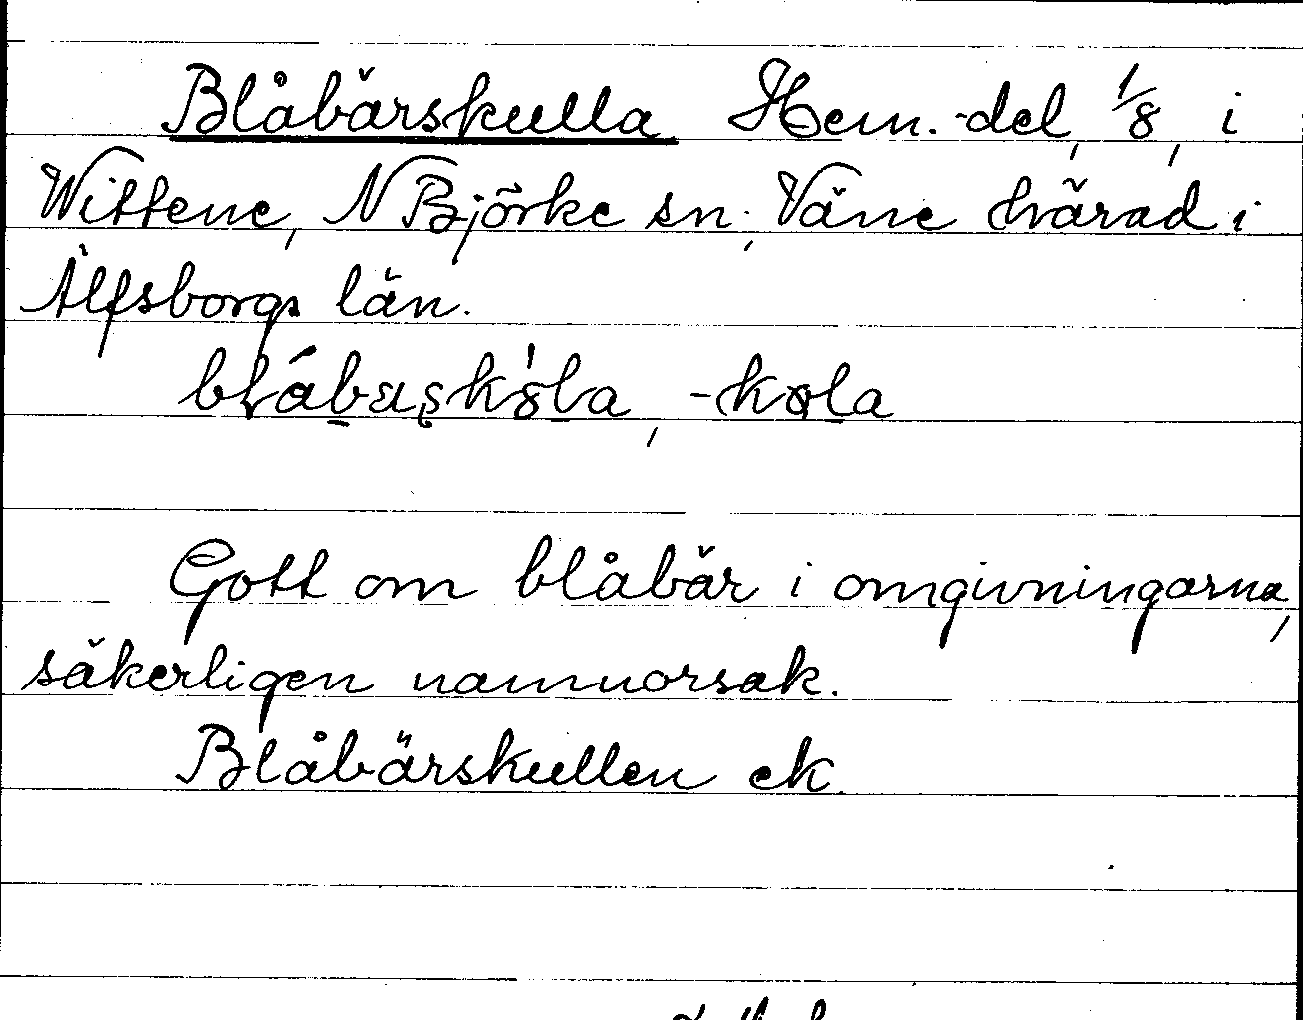 Blåbärskulla Hem.-del, 1/8, i
Wittene, N Björke sn, Väne härad i
Älfsborgs län.
Gott om blåbär i omgivningarna,
säkerligen namnorsak.
Blåbärskullen ek.